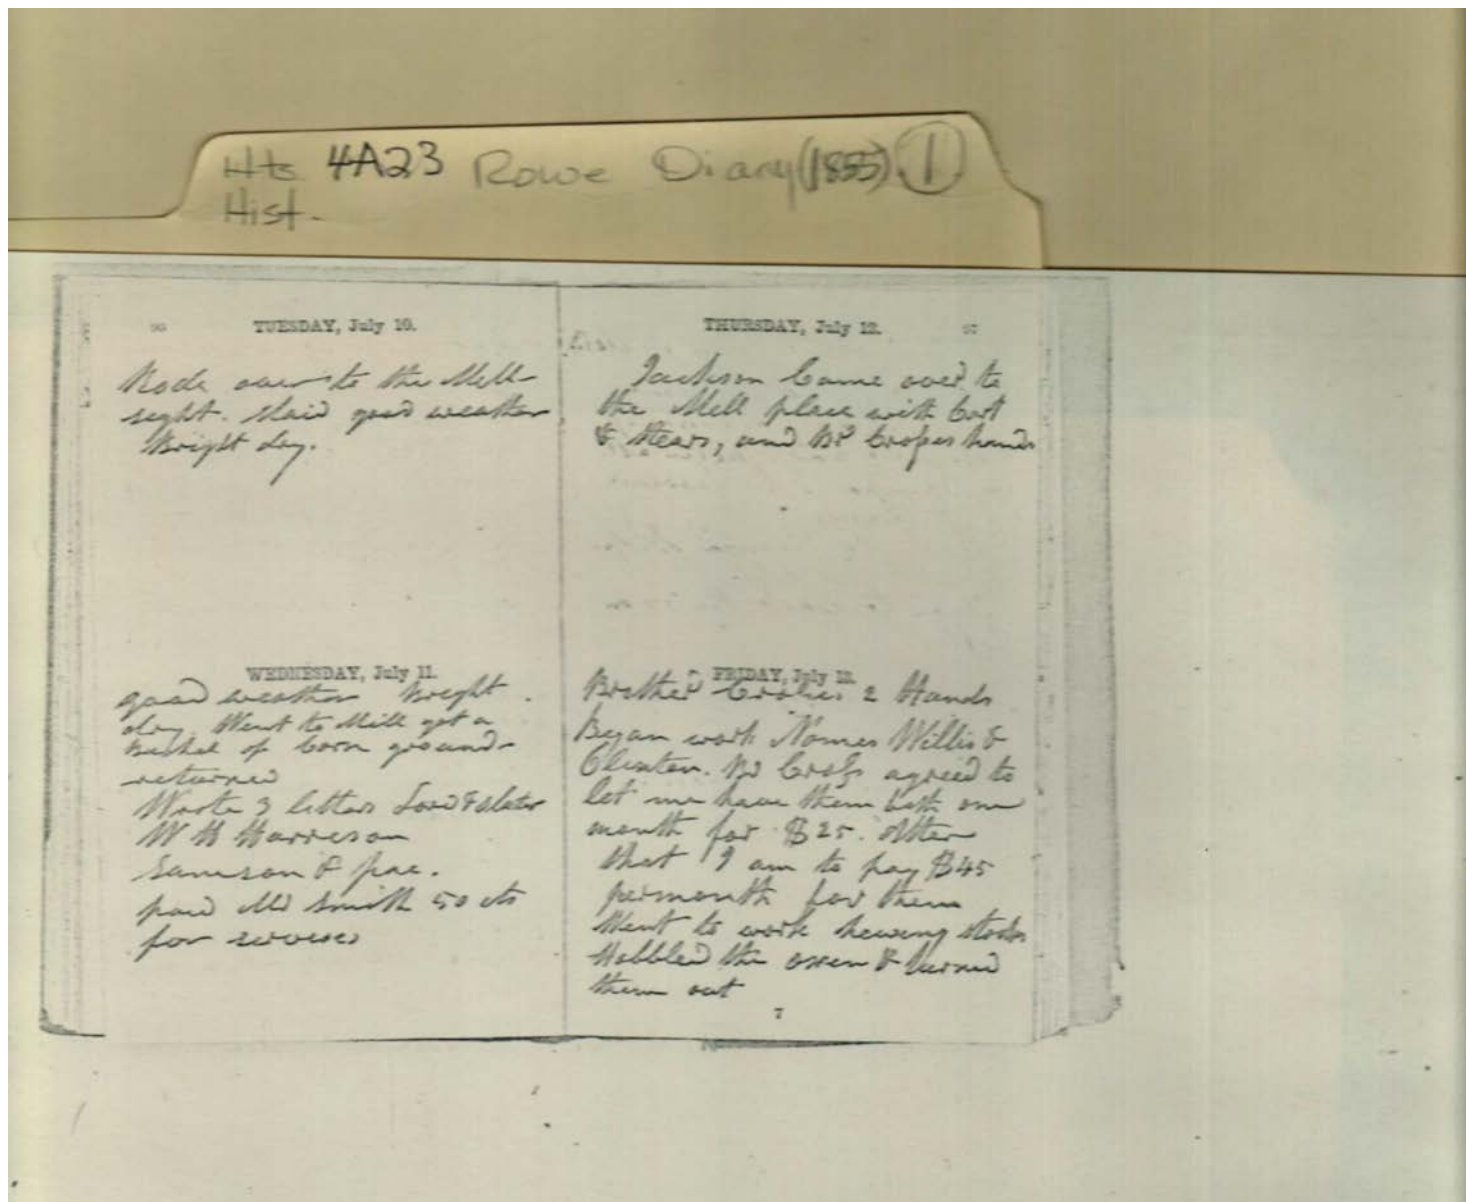 Hts 4A23 Rowe Diary (1855) 1
Hist.
96 TUESDAY, July 10.
Rode over to the Mell
seght. Maid good weather
Bright dry.
WEDNESDAY, July 11.
good weather Bright
dry Went to Mill got a
bushel of Corn ground
returned
Wrote 3 letters Lord & slater
W H Harreson
Samson & pae.
paid Md Smith 50 cts
for
THURSDAY, July 12. 97
Jackson Came over to
the Mell place with Cart
& Stears, and Br hands
FRIDAY, July 13.
Brother 2 Hands
Began work Names Willis &
Clinton. Br agreed to
let me have them both one
month for $25. After
that I am to pay $45
per month for them
Went to work hewing stocks
Hobbled the oxen & turned
them out
7